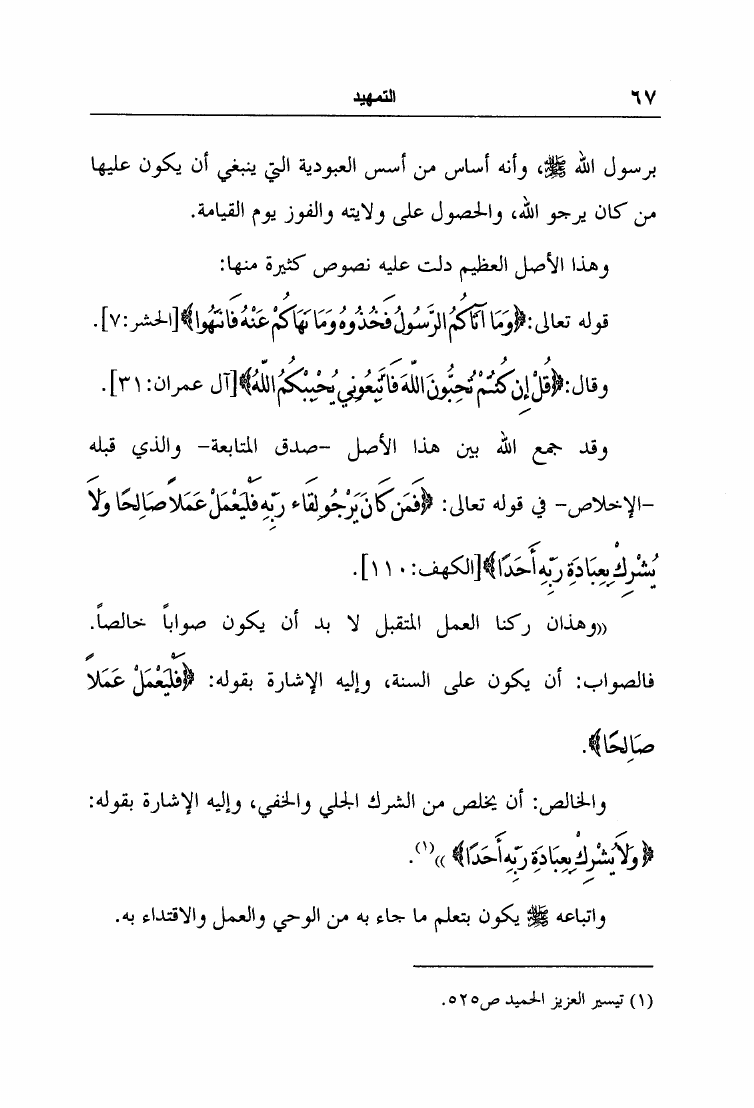 ٦٧ التمهيد
برسول الله ﷺ، وأنه أساس من أسس العبودية التي ينبغي أن يكون عليها
من كان يرجو الله، والحصول على ولايته والفوز يوم القيامة.
وهذا الأصل العظيم دلت عليه نصوص كثيرة منها:
قوله تعالى: ﴿وَمَا آتَاكُمُ الرَّسُولُ فَخُذُوهُ وَمَا نَهَاكُمْ عَنْهُ فَانتَهُوا﴾[الحشر:٧].
وقال: ﴿قُلْ إِن كُنتُمْ تُحِبُّونَ اللَّهَ فَاتَّبِعُونِي يُحْبِبْكُمُ اللَّهُ﴾[آل عمران:٣١].
وقد جمع الله بين هذا الأصل -صدق المتابعة- والذي قبله
-الإخلاص- في قوله تعالى: ﴿فَمَن كَانَ يَرْجُو لِقَاء رَبِّهِ فَلْيَعْمَلْ عَمَلاً صَالِحًا وَلَا
يُشْرِكْ بِعِبَادَةِ رَبِّهِ أَحَدًا﴾[الكهف:١١٠].
«وهذان ركنا العمل المتقبل لا بد أن يكون صواباً خالصاً.
فالصواب: أن يكون على السنة، وإليه الإشارة بقوله: ﴿فَلْيَعْمَلْ عَمَلاً
صَالِحًا﴾.
والخالص: أن يخلص من الشرك الجلي والخفي، وإليه الإشارة بقوله:
﴿وَلَا يُشْرِكْ بِعِبَادَةِ رَبِّهِ أَحَدًا﴾ »(١).
واتباعه ﷺ يكون بتعلم ما جاء به من الوحي والعمل والاقتداء به.
(١) تيسير العزيز الحميد ص٥٢٥.